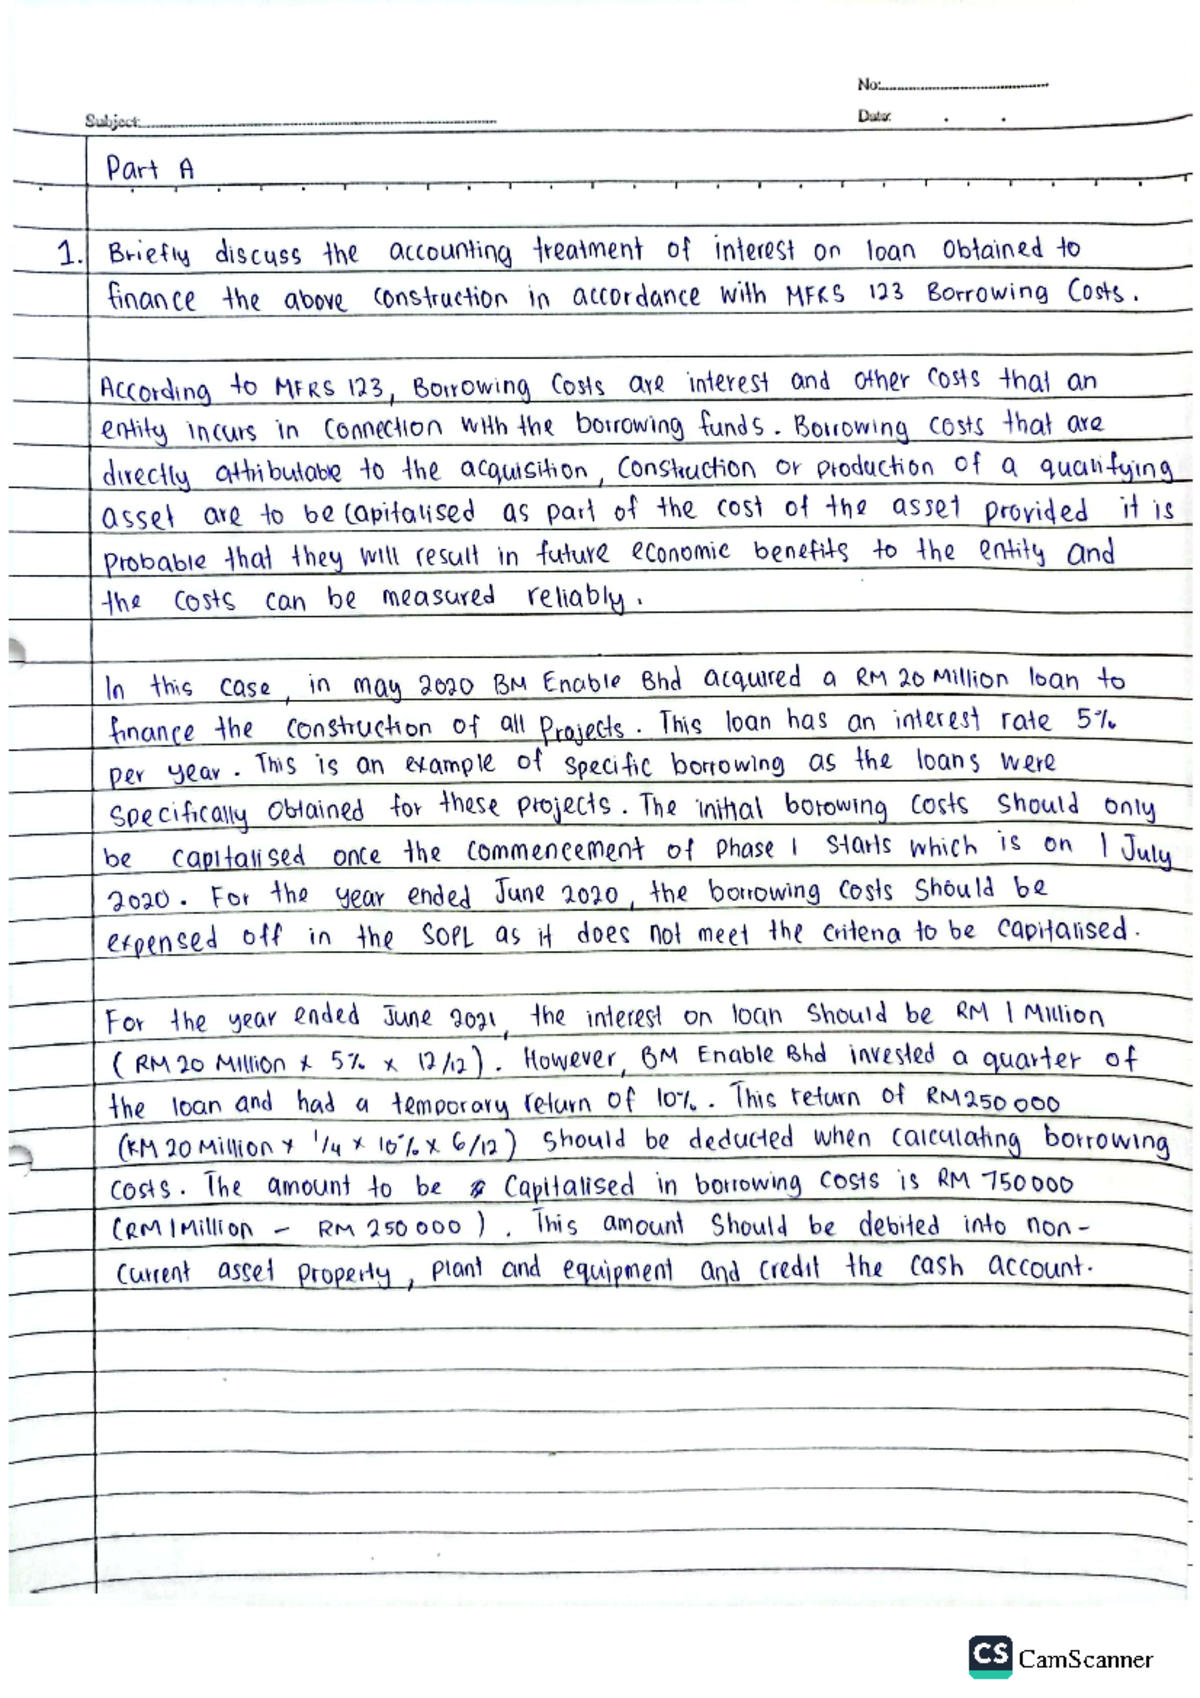 No:
Subject:
Date:
Part A
1. Briefly discuss the accounting treatment of interest on loan obtained to
finance the above construction in accordance with MFRS 123 Borrowing Costs.
According to MFRS 123, Borrowing Costs are interest and other costs that an
entity incurs in connection with the borrowing funds. Borrowing costs that are
directly attributable to the acquisition, construction or production of a qualifying
asset are to be capitalised as part of the cost of the asset provided it is
probable that they will result in future economic benefits to the entity and
the costs can be measured reliably.
In this case, in may 2020 BM Enable Bhd acquired a RM 20 Million loan to
finance the construction of all projects. This loan has an interest rate 5%
per year. This is an example of specific borrowing as the loans were
specifically obtained for these projects. The initial borowing costs should only
be capitalised once the commencement of phase 1 starts which is on 1 July
2020. For the year ended June 2020, the borrowing costs should be
expensed off in the SOPL as it does not meet the criteria to be capitalised.
For the year ended June 2021, the interest on loan should be RM 1 Million
(RM 20 Million x 5% x 12/12). However, BM Enable Bhd invested a quarter of
the loan and had a temporary return of 10%. This return of RM250 000
(RM 20 Million x 1/4 x 10% x 6/12) should be deducted when calculating borrowing
costs. The amount to be capitalised in borrowing costs is RM 750 000
(RM 1 Million - RM 250 000). This amount should be debited into non-
current asset property, plant and equipment and credit the cash account.
CS CamScanner